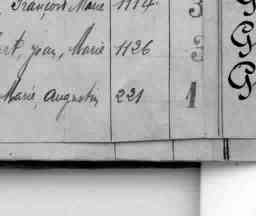 François Marie 1114 3
Jean, Marie 1126 3 G
Marie, Augustin 221 1 G